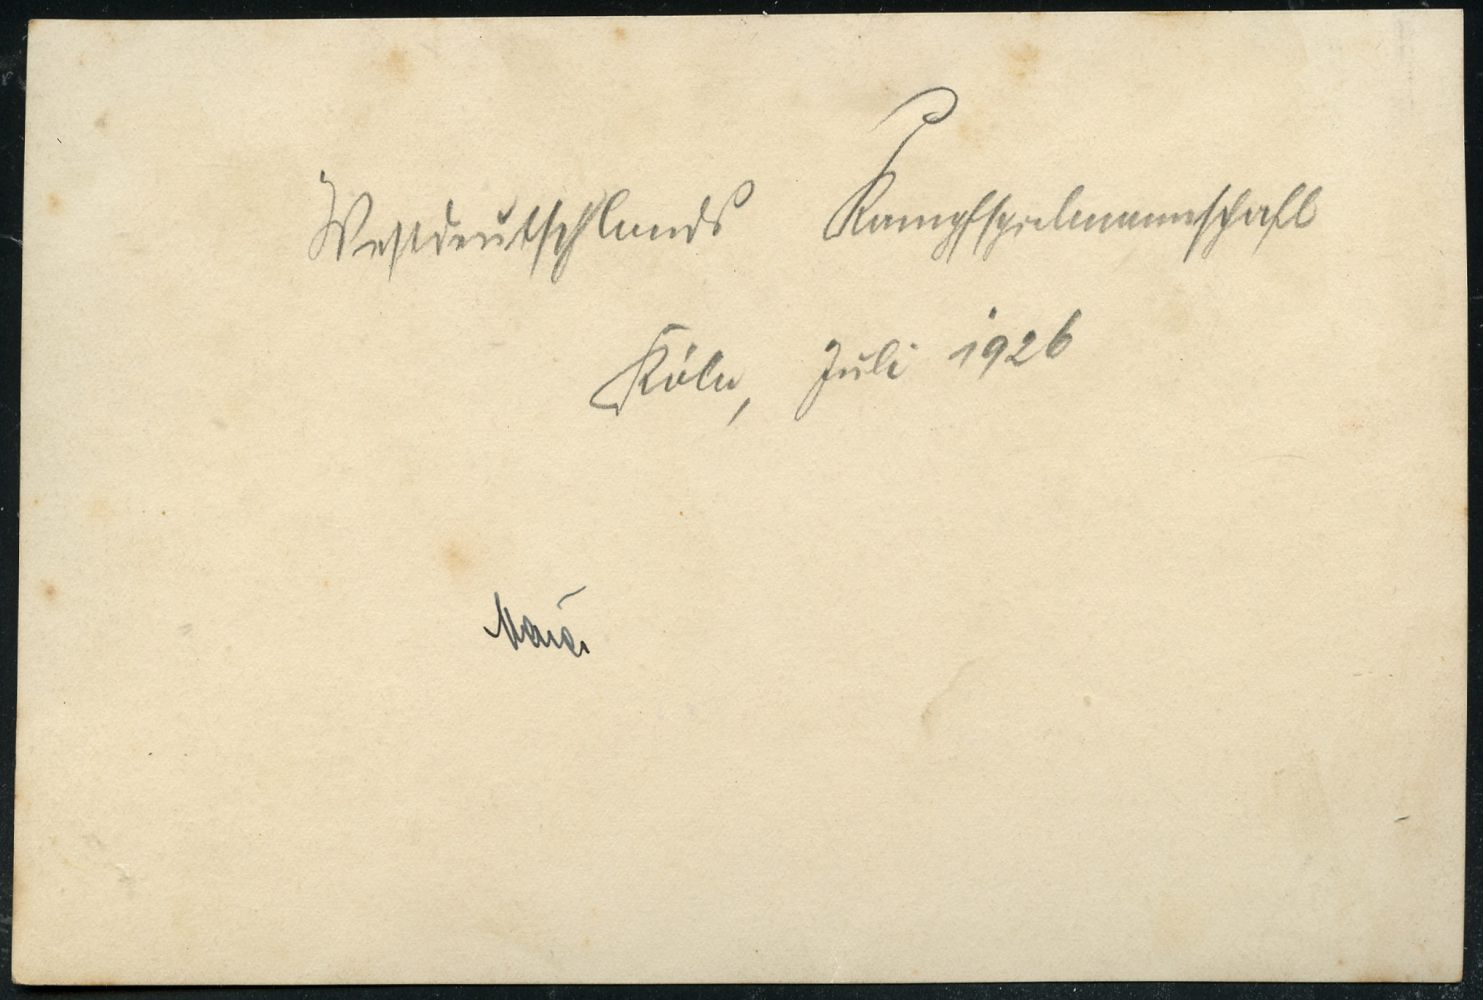 Westdeutschlands Kampfspielmannschaft
Köln, Juli 1926